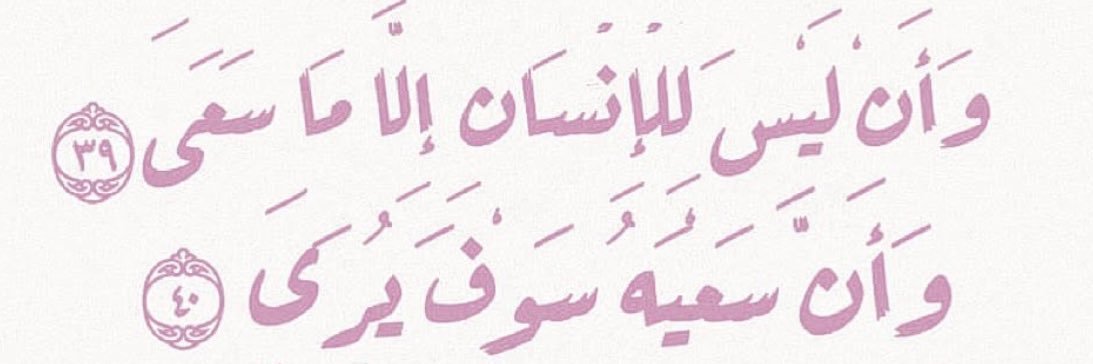 وَأَن لَيْسَ لِلْإِنْسَانِ إِلَّا مَا سَعَى ٣٩
وَأَنَّ سَعْيَهُ سَوْفَ يُرَى ٤٠